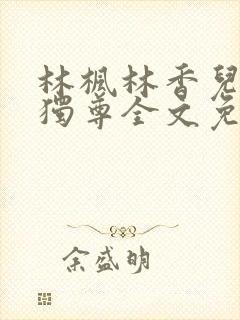 林楓林香兒
獨尊全文免
余盛明